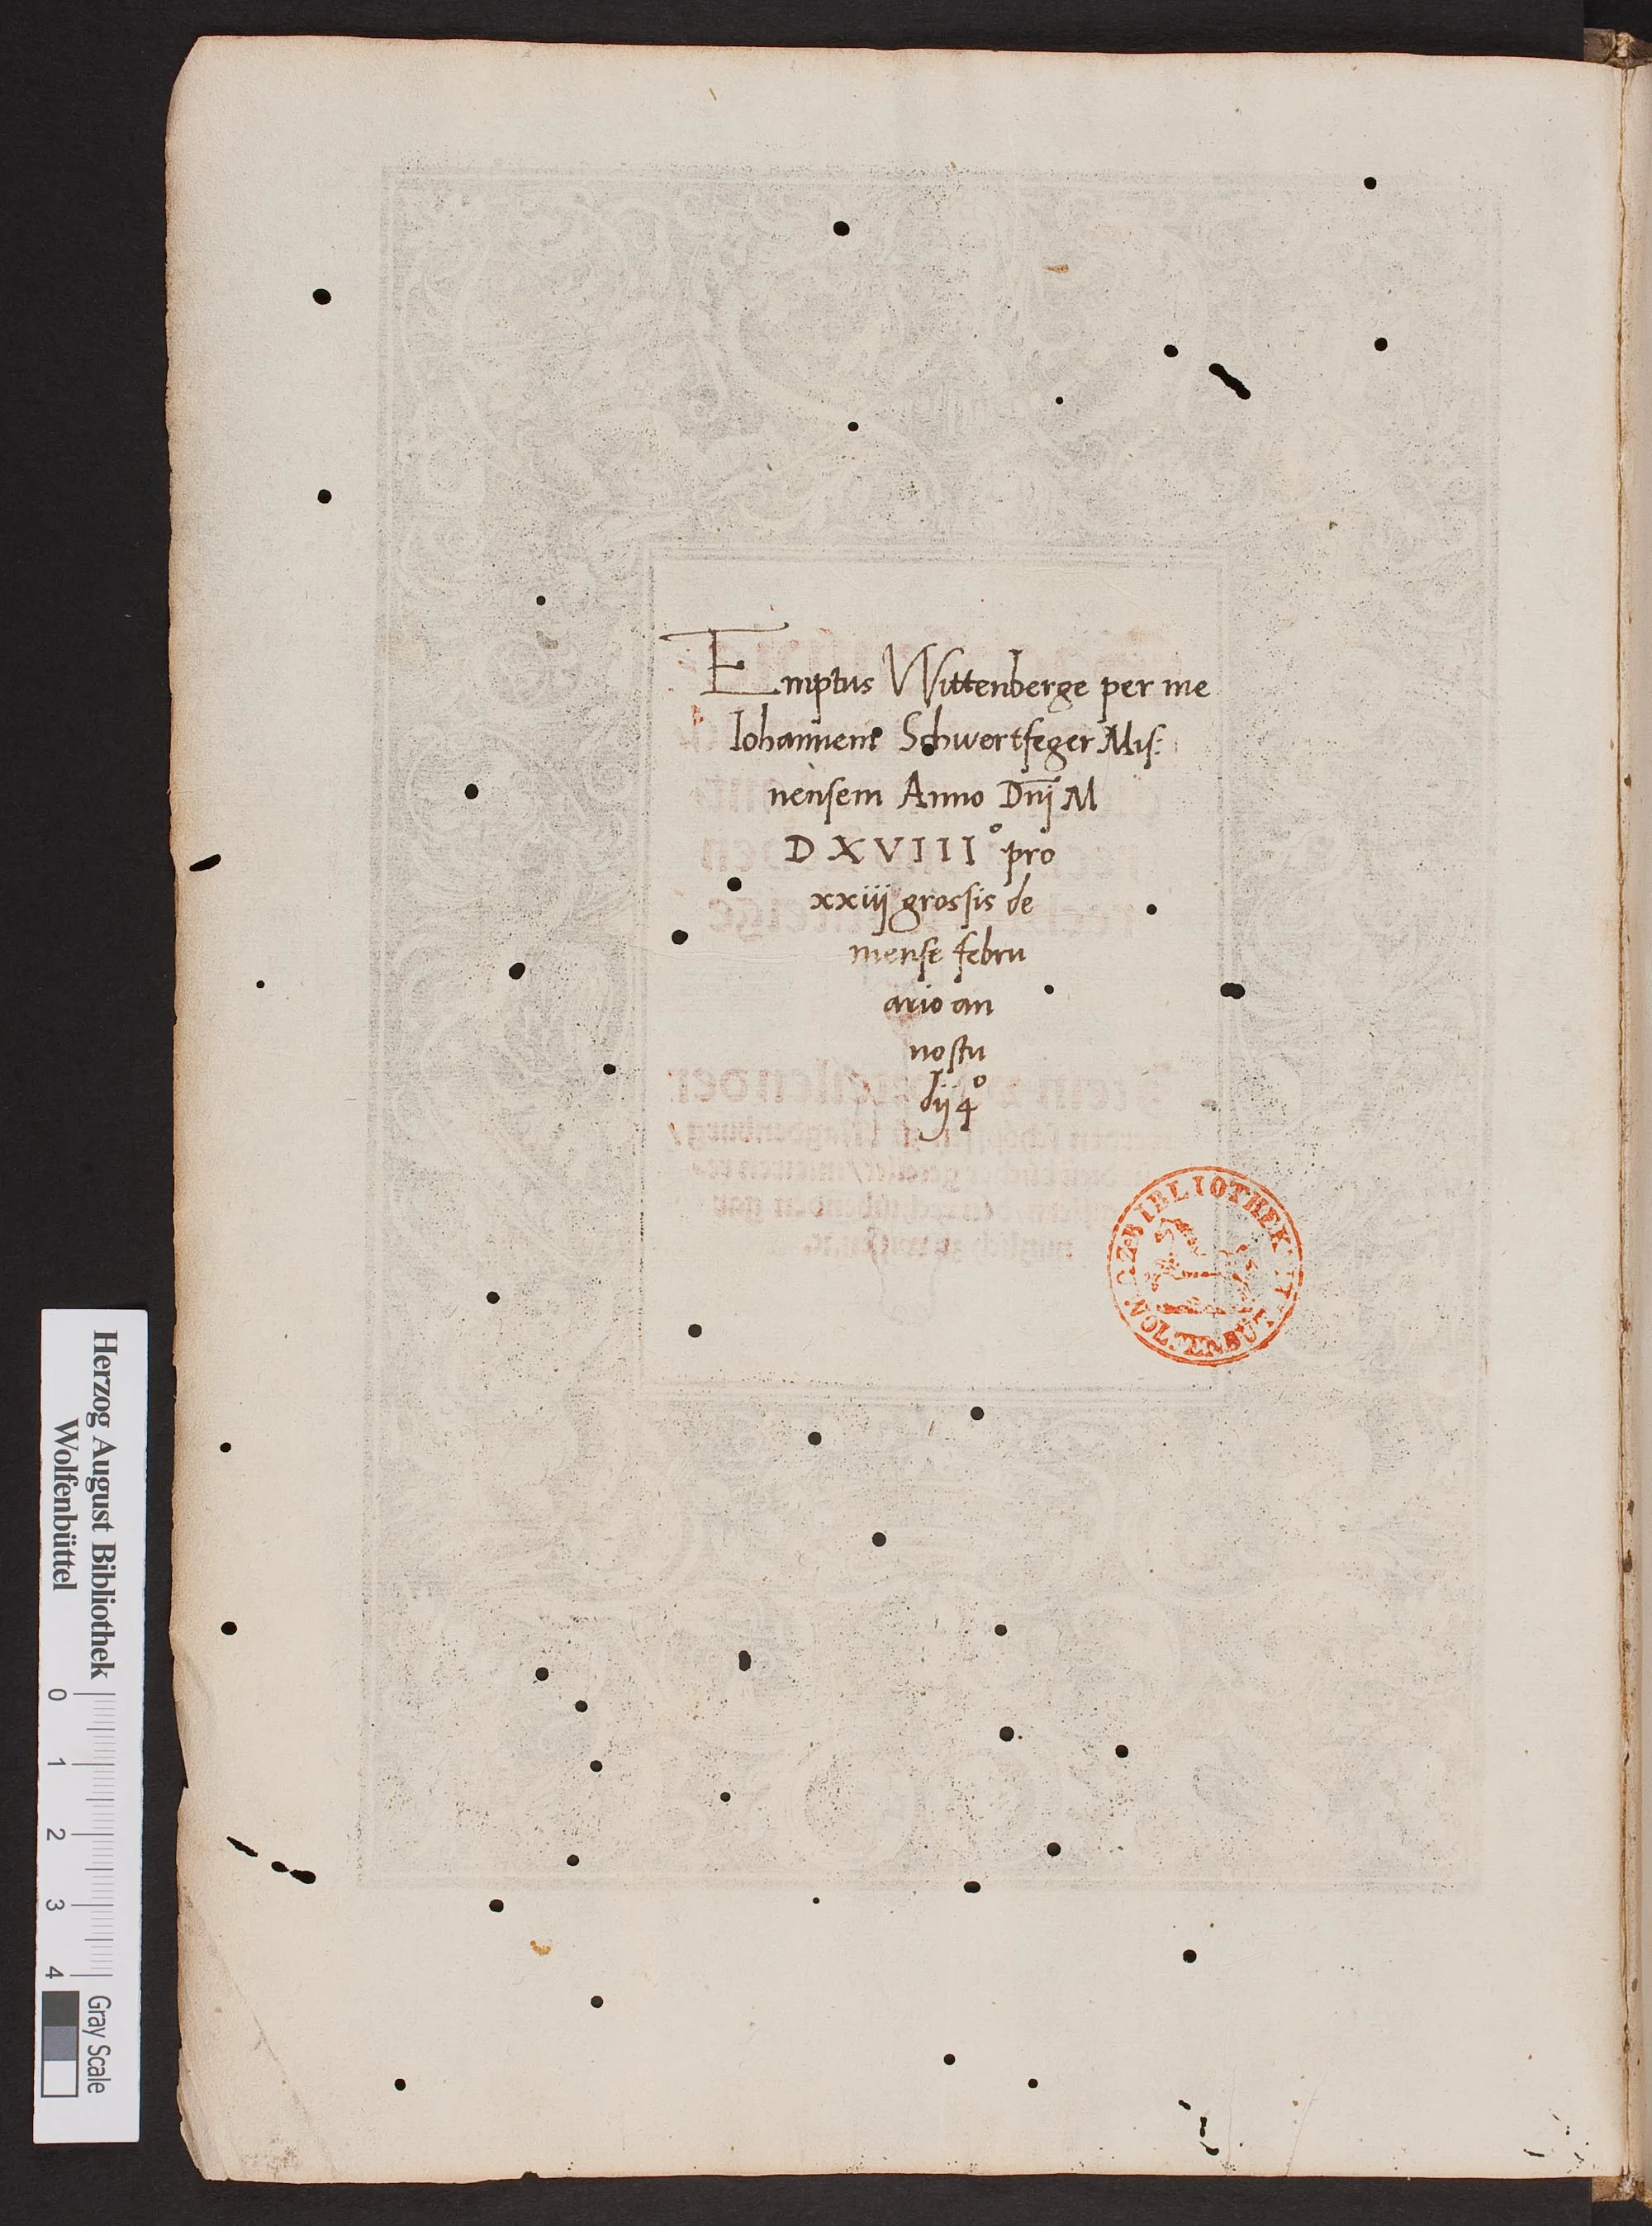 Emptus Wittenberge per me
Iohannem Schwertfeger Mis:
nensem Anno Dnī M
D X V I I I I° pro
xxiiij grossis de
mense febru
ario an
no stu
dij 4°
BIBLIOTHEK
Herzog August Bibliothek
Wolfenbüttel
0 1 2 3 4
Gray Scale